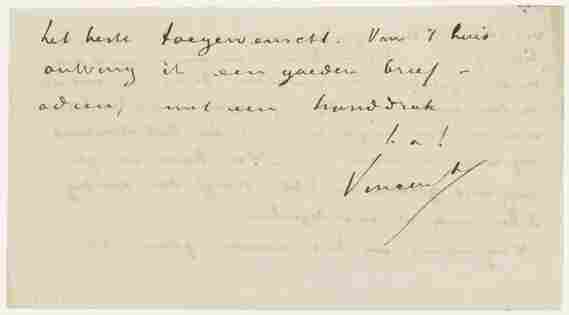 het beste toegewenscht. Van 't huis
ontving ik een goeden brief –
adieu, met een handdruk
t. à t.
Vincent